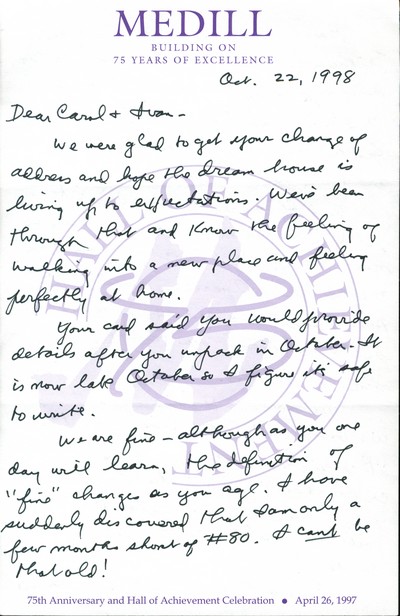 MEDILL
BUILDING ON
75 YEARS OF EXCELLENCE
Oct. 22, 1998
Dear Carol & Ivan -
We were glad to get your change of
address and hope the dream house is
living up to expectations. We've been
through that and know the feeling of
walking into a new place and feeling
perfectly at home.
Your card said you would provide
details after you unpack in October. It
is now late October so I figure its safe
to write.
We are fine - although as you one
day will learn, the definition of
"fine" changes as you age. I have
suddenly discovered that I am only a
few months short of #80. I can't be
that old!
HALL OF ACHIEVEMENT
75th Anniversary and Hall of Achievement Celebration • April 26, 1997